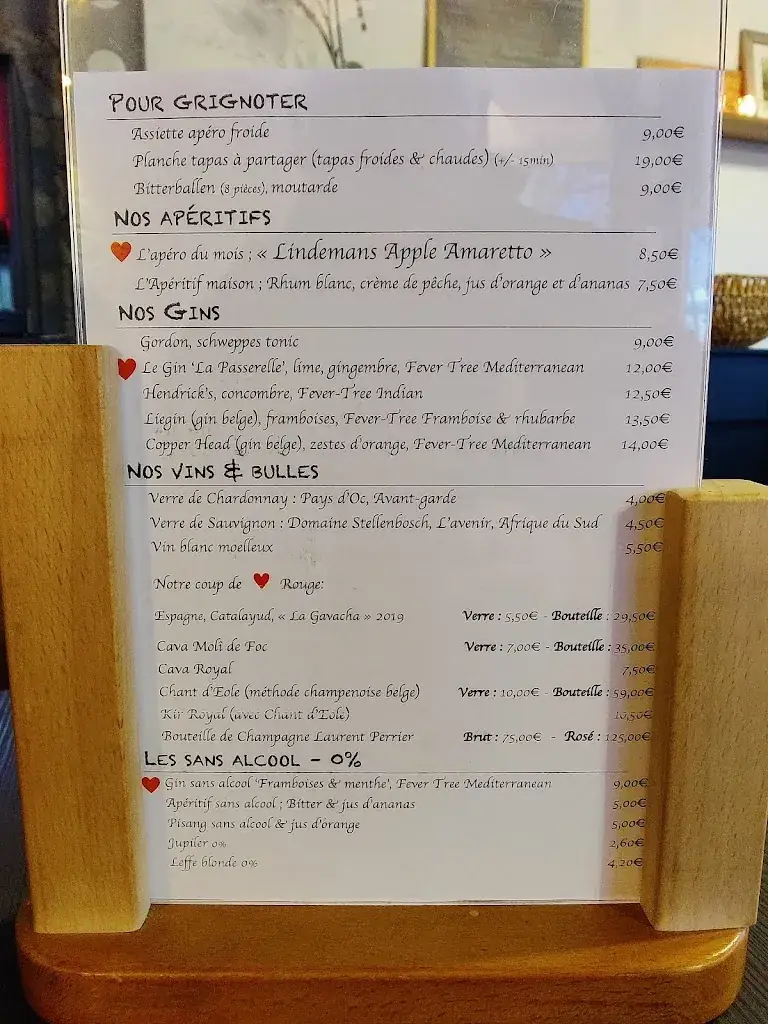 POUR GRIGNOTER
Assiette apéro froide 9,00€
Planche tapas à partager (tapas froides & chaudes) (+/- 15min) 19,00€
Bitterballen (8 pièces), moutarde 9,00€
NOS APÉRITIFS
L'apéro du mois ; « Lindemans Apple Amaretto » 8,50€
L'Apéritif maison ; Rhum blanc, crème de pêche, jus d'orange et d'ananas 7,50€
NOS GINS
Gordon, schweppes tonic 9,00€
Le Gin 'La Passerelle', lime, gingembre, Fever Tree Mediterranean 12,00€
Hendrick's, concombre, Fever-Tree Indian 12,50€
Liegin (gin belge), framboises, Fever-Tree Framboise & rhubarbe 13,50€
Copper Head (gin belge), zestes d'orange, Fever-Tree Mediterranean 14,00€
NOS VINS & BULLES
Verre de Chardonnay : Pays d'Oc, Avant-garde 4,00€
Verre de Sauvignon : Domaine Stellenbosch, L'avenir, Afrique du Sud 4,50€
Vin blanc moelleux 5,50€
Notre coup de Rouge:
Espagne, Catalayud, « La Gavacha » 2019 Verre : 5,50€ - Bouteille : 29,50€
Cava Moli de Foc Verre : 7,00€ - Bouteille : 35,00€
Cava Royal 7,50€
Chant d'Eole (méthode champenoise belge) Verre : 10,00€ - Bouteille : 59,00€
Kir Royal (avec Chant d'Eole) 10,50€
Bouteille de Champagne Laurent Perrier Brut : 75,00€ - Rosé : 125,00€
LES SANS ALCOOL - 0%
Gin sans alcool 'Framboises & menthe', Fever Tree Mediterranean 9,00€
Apéritif sans alcool ; Bitter & jus d'ananas 5,00€
Pisang sans alcool & jus d'orange 5,00€
Jupiler 0% 2,60€
Leffe blonde 0% 4,20€